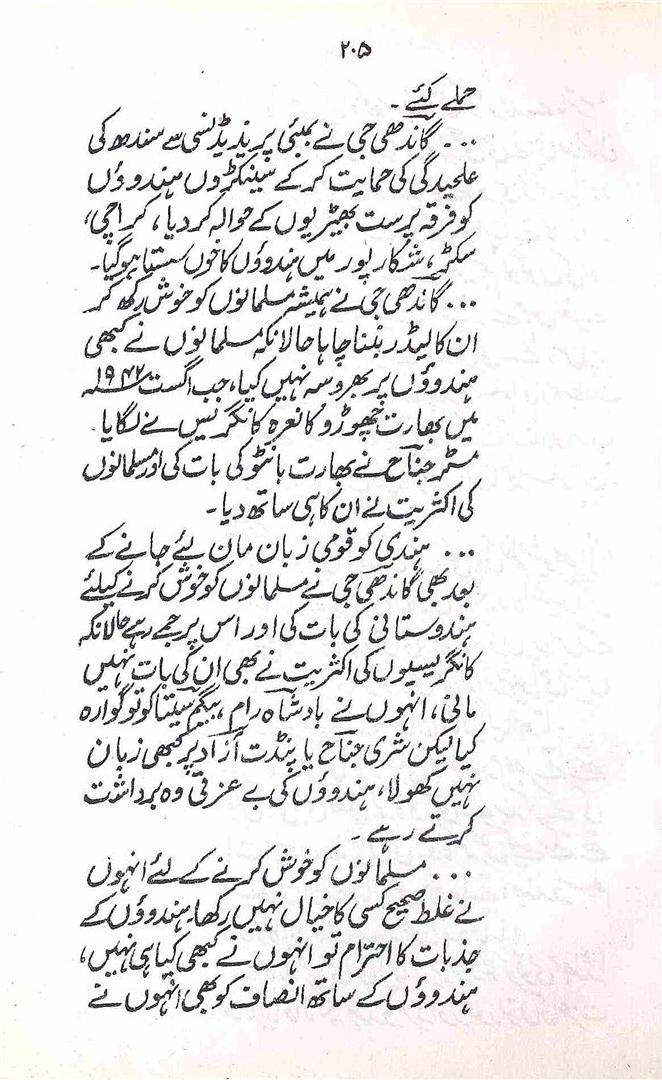 ۲۰۵
حملے کئے۔
... گاندھی جی نے بمبئی پریذیڈنسی سے سندھ کی
علیحدگی کی حمایت کر کے سینکڑوں ہندوؤں
کو فرقہ پرست بھیڑیوں کے حوالہ کر دیا، کراچی،
سکھر، شکارپور میں ہندوؤں کا خوں سستا ہو گیا۔
... گاندھی جی نے ہمیشہ مسلمانوں کو خوش رکھ کر
ان کا لیڈر بننا چاہا حالانکہ مسلمانوں نے کبھی
ہندوؤں پر بھروسہ نہیں کیا، جب اگست ۱۹۴۲ء
میں بھارت چھوڑو کا نعرہ کانگریس نے لگایا۔
مسٹر جناح نے بھارت بانٹو کی بات کی اور مسلمانوں
کی اکثریت نے ان کا ہی ساتھ دیا۔
... ہندی کو قومی زبان مان لئے جانے کے
بعد بھی گاندھی جی نے مسلمانوں کو خوش کرنے کیلئے
ہندوستانی کی بات کی اور اس پر جمے رہے حالانکہ
کانگریسیوں کی اکثریت نے بھی ان کی بات نہیں
مانی، انہوں نے بادشاہ رام، بیگم سیتا کو تو گوارہ
کیا لیکن شری جناح یا پنڈت آزاد پر کبھی زبان
نہیں کھولا، ہندوؤں کی بے عزتی وہ برداشت
کرتے رہے۔
... مسلمانوں کو خوش کرنے کے لئے انہوں
نے غلط صحیح کسی کا خیال نہیں رکھا، ہندوؤں کے
جذبات کا احترام تو انہوں نے کبھی کیا ہی نہیں،
ہندوؤں کے ساتھ انصاف کو بھی انہوں نے